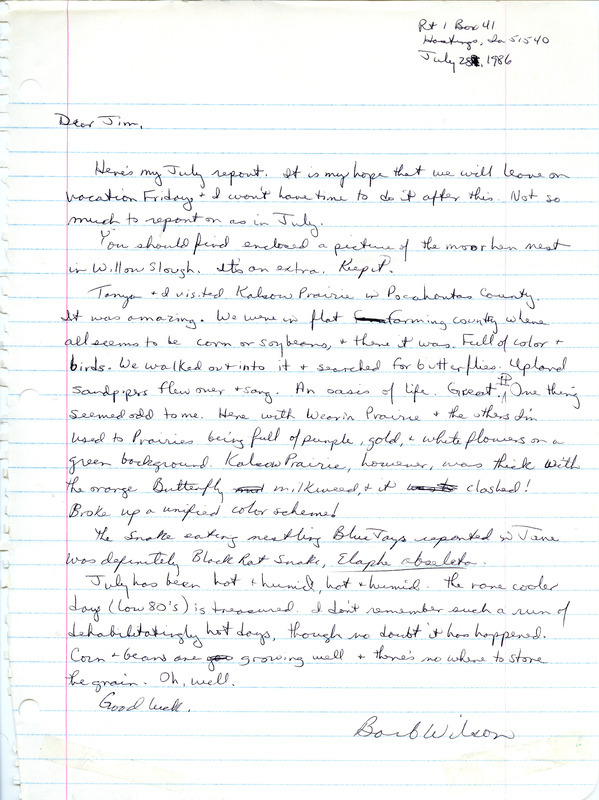 Rt 1 Box 41
Hastings, Ia 51540
July 28, 1986
Dear Jim,
Here's my July report. It is my hope that we will leave on
vacation Friday, + I won't have time to do it after this. Not so
much to report on as in July.
You should find enclosed a picture of the moorhen nest
in Willow Slough. It's an extra. Keep it.
Tanya + I visited Kalsow Prairie in Pocahontas County.
It was amazing. We were in flat farming country where
all seems to be corn or soybeans, + there it was. Full of color +
birds. We walked out into it + searched for butterflies. Upland
Sandpipers flew over + sang. An oasis of life. Great! ¶ One thing
seemed odd to me. Here with Wearin Prairie + the others I'm
used to Prairies being full of purple, gold, + white flowers on a
green background. Kalsow Prairie, however, was thick with
the orange Butterfly milkweed, + it clashed!
Broke up a unified color scheme!
The Snake eating nestling Blue Jays reported in June
was definitely Black Rat Snake, Elaphe obsoleta.
July has been hot + humid, hot + humid. The rare cooler
day (low 80's) is treasured. I don't remember such a run of
dehabilitatingly hot days, though no doubt it has happened.
Corn + beans are growing well + there's no where to store
the grain. Oh, well.
Good luck.
Barb Wilson